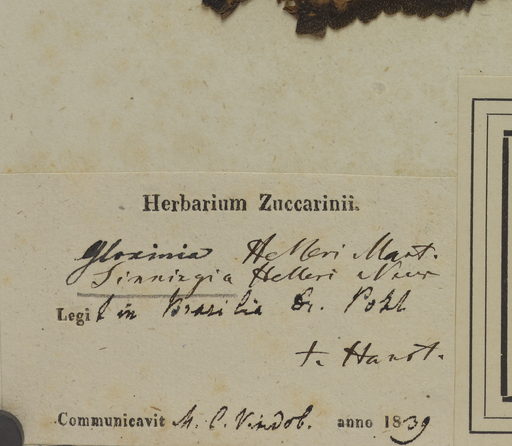 Herbarium Zuccarinii.
Gloxinia Helleri Mart.
Sinningia Helleri Nees
Legit in Brasilia Dr. Pohl
Communicavit M. C. Vindob. anno 1839